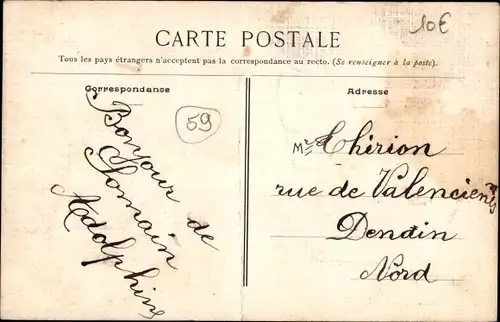 10€
CARTE POSTALE
Tous les pays étrangers n'acceptent pas la correspondance au recto. (Se renseigner à la poste).
Correspondance
Adresse
59
Bonjour de
Somain
Adolphine
Mr Thirion
rue de Valenciennes
Denain
Nord